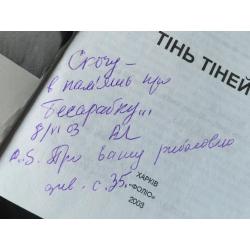 ТІНЬ ТІНЕЙ
в пам'ять про
Бесарабку...
8/VI 03
P.S. Про вашу риболовлю
див. с. 35.
ХАРКІВ
«ФОЛІО»
2003